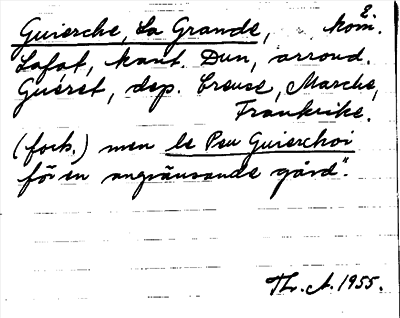 Guierche, La Grande, kom. 2.
Lafat, kant. Dun, arrond.
Guéret, dep. Creuse, Marche,
Frankrike.
(forh.) men le Peu Guierchoi
för en angränsande gård".
Th. A. 1955.